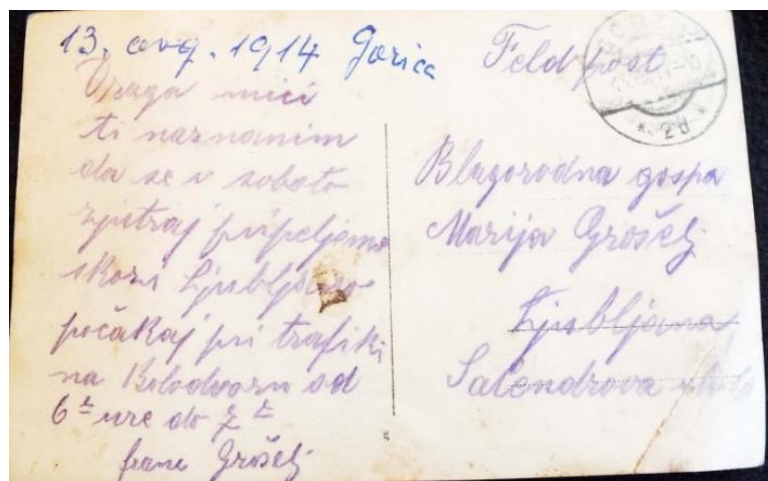 13. avg. 1914 Gorica
Draga mici
ti naznanim
da se v soboto
zjutraj pripeljemo
skozi Ljubljano
počakaj pri trafiki
na Kolodvoru od
6 ure do 7
Grošelj
Feldpost
2d
Blagorodna gospa
Marija Grošelj
Ljubljana
Salendrova